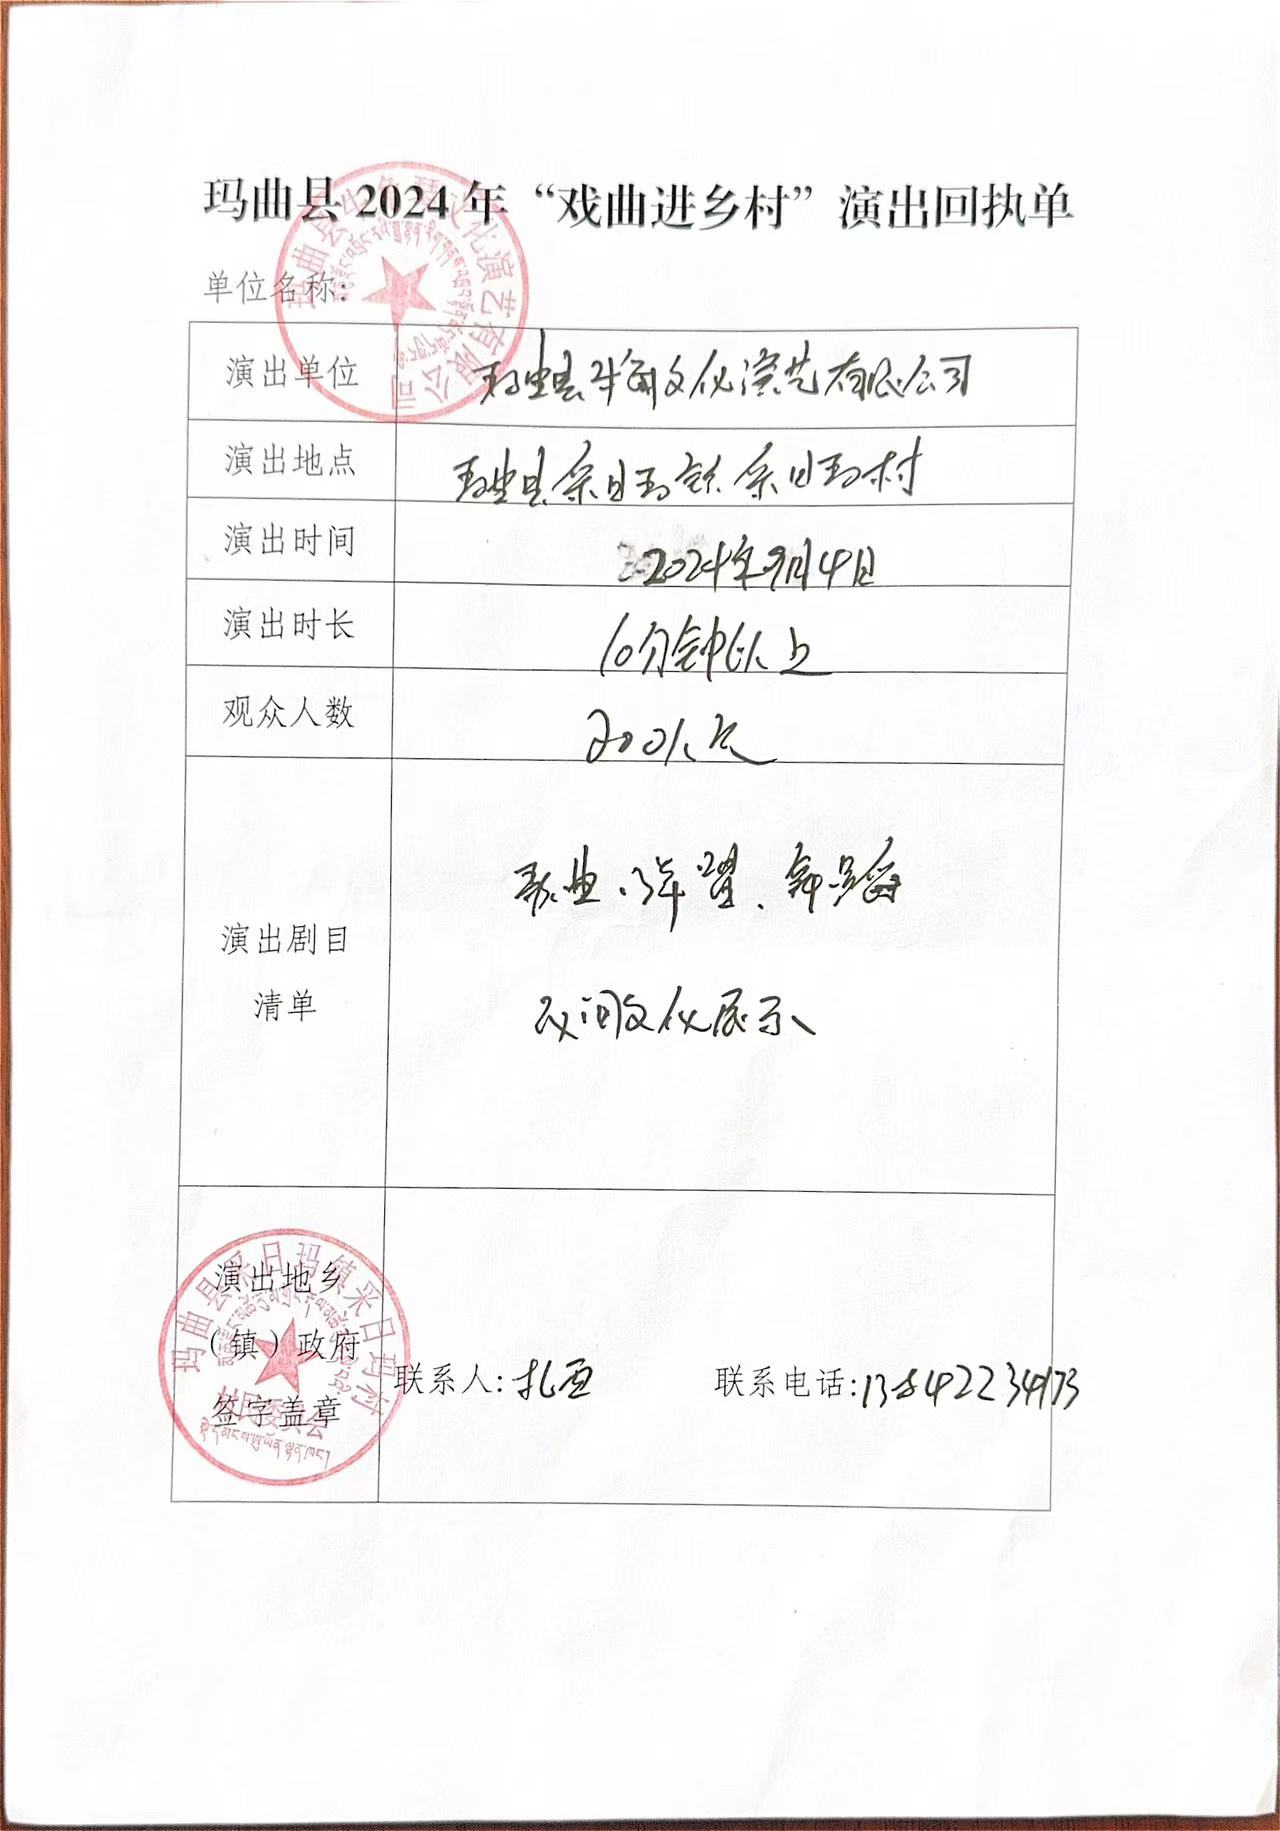 玛曲县 2024 年“戏曲进乡村”演出回执单
单位名称:
演出单位 玛曲县牛角文化演艺有限公司
演出地点 玛曲县采日玛镇采日玛村
演出时间 2024年9月4日
演出时长 60分钟以上
观众人数 200人次
演出剧目
清单
歌曲、弹唱、舞蹈
民间文化展示、
演出地乡
（镇）政府
签字盖章
联系人: 扎西 联系电话:
玛曲县采日玛镇采日玛村
委员会